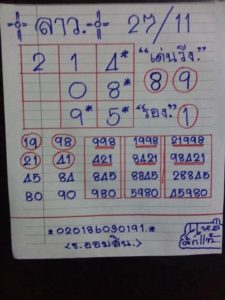 ลาว. 27/11
2 1 4* "เด่นวิ่ง."
0 8* 8 9
9* 5* "รอง." 1
19 98 998 1998 21998
21 41 421 8421 98421
45 84 845 8845 28845
80 90 980 5980 45980
*020186030191.*